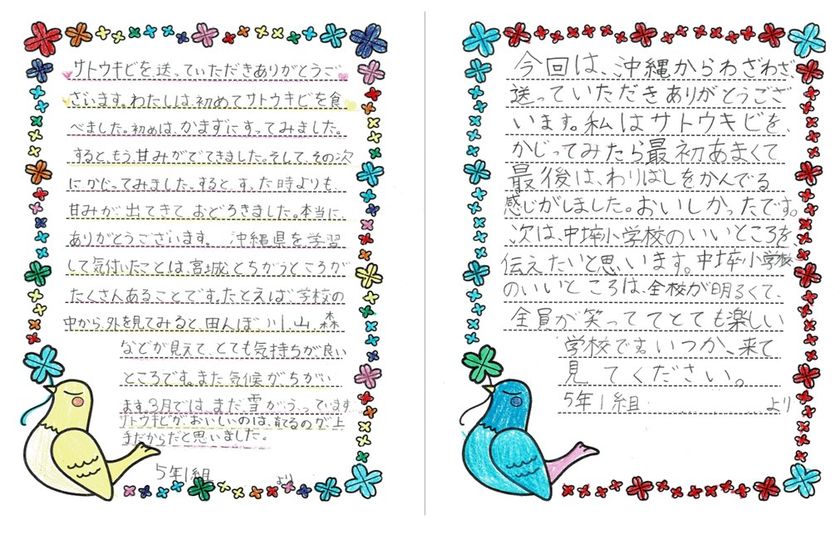 サトウキビを、送っていただきありがとうご
ざいます。わたしは、初めてサトウキビを食
べました。初めは、かまずにすってみました。
すると、もう甘みがでてきました。そして、その次
にかじってみました。すると、すった時よりも
甘みが、出てきて、おどろきました。本当に、
ありがとうございます。 沖縄県を学習
して気付いたことは、宮城とちがうところが
たくさんあることです。たとえば、学校の
中から、外を見てみると、田んぼ、川、山、森
などが見えて、とても気持ちが良い
ところです。また気候がちがい
ます。3月では、まだ雪がふっています
サトウキビが、おいしいのは、育てるのが上
手だからだと思いました。
5年1組 より
今回は、沖縄からわざわざ
送っていただきありがとうござ
います。私はサトウキビを、
かじってみたら最初あまくて
最後は、わりばしをかんでる
感じがしました。おいしかったです。
次は、中埣小学校のいいところを、
伝えたいと思います。中埣小学校
のいいところは、全校が明るくて、
全員が笑っててとても楽しい
学校です。いつか、来て
見てください。
5年1組 より